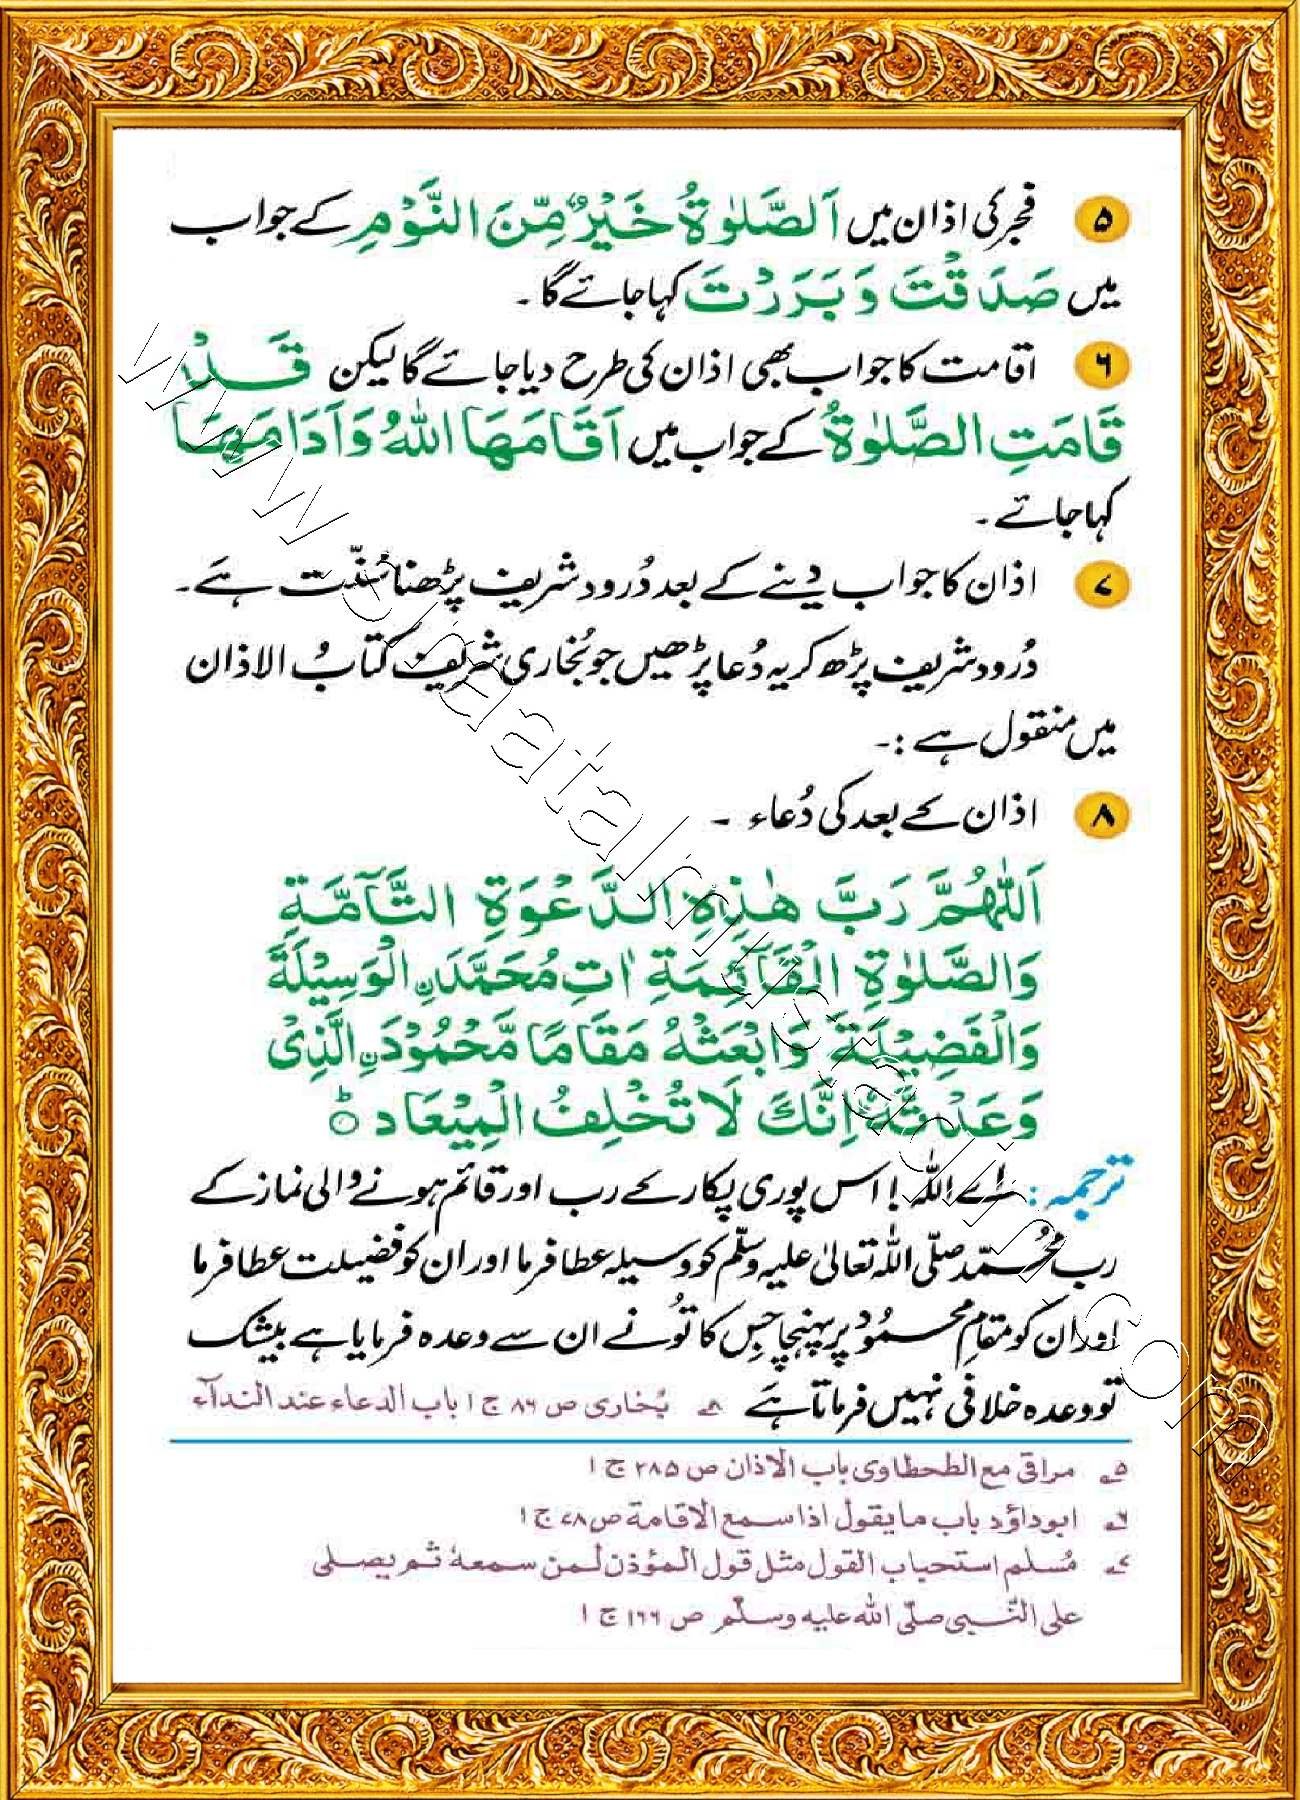 ۵ فجر کی اذان میں اَلصَّلٰوةُ خَيْرٌ مِّنَ النَّوْمِ کے جواب
میں صَدَقْتَ وَبَرَرْتَ کہا جائے گا ۔
۶ اقامت کا جواب بھی اذان کی طرح دیا جائے گا لیکن قَدْ
قَامَتِ الصَّلٰوةُ کے جواب میں اَقَامَهَا اللهُ وَاَدَامَهَا
کہا جائے ۔
۷ اذان کا جواب دینے کے بعد دُرود شریف پڑھنا سُنّت ہے ۔
دُرود شریف پڑھ کر یہ دُعا پڑھیں جو بُخاری شریف کتابُ الاذان
میں منقول ہے :۔
۸ اذان کے بعد کی دُعاء ۔
اَللّٰهُمَّ رَبَّ هٰذِهِ الدَّعْوَةِ التَّآمَّةِ
وَالصَّلٰوةِ الْقَآئِمَةِ اٰتِ مُحَمَّدَنِ الْوَسِيْلَةَ
وَالْفَضِيْلَةَ وَابْعَثْهُ مَقَامًا مَّحْمُوْدَنِ الَّذِىْ
وَعَدْتَّهٗ اِنَّكَ لَا تُخْلِفُ الْمِيْعَادِ ؕ
ترجمہ : اے اللہ! اس پوری پکار کے رب اور قائم ہونے والی نماز کے
رب مُحمّد صلّی اللہ تعالیٰ علیہ وسلّم کو وسیلہ عطا فرما اور ان کو فضیلت عطا فرما
اور ان کو مقامِ محمُود پر پہنچا جس کا تُو نے ان سے وعدہ فرمایا ہے بیشک
تو وعدہ خلافی نہیں فرماتا ہے ۸ بُخاری ص ۸۶ ج ۱ باب الدعاء عند الندآء
۵ مراقی مع الطحطاوی باب الاذان ص ۲۸۵ ج ۱
۶ ابوداؤد باب ما یقول اذا سمع الاقامة ص ۷۸ ج ۱
۷ مُسلم استحباب القول مثل قول المؤذن لمن سمعهٗ ثم یصلی
علی النّبی صلّی الله علیه وسلّم ص ۱۶۶ ج ۱
www.ishaatalhusradin.com